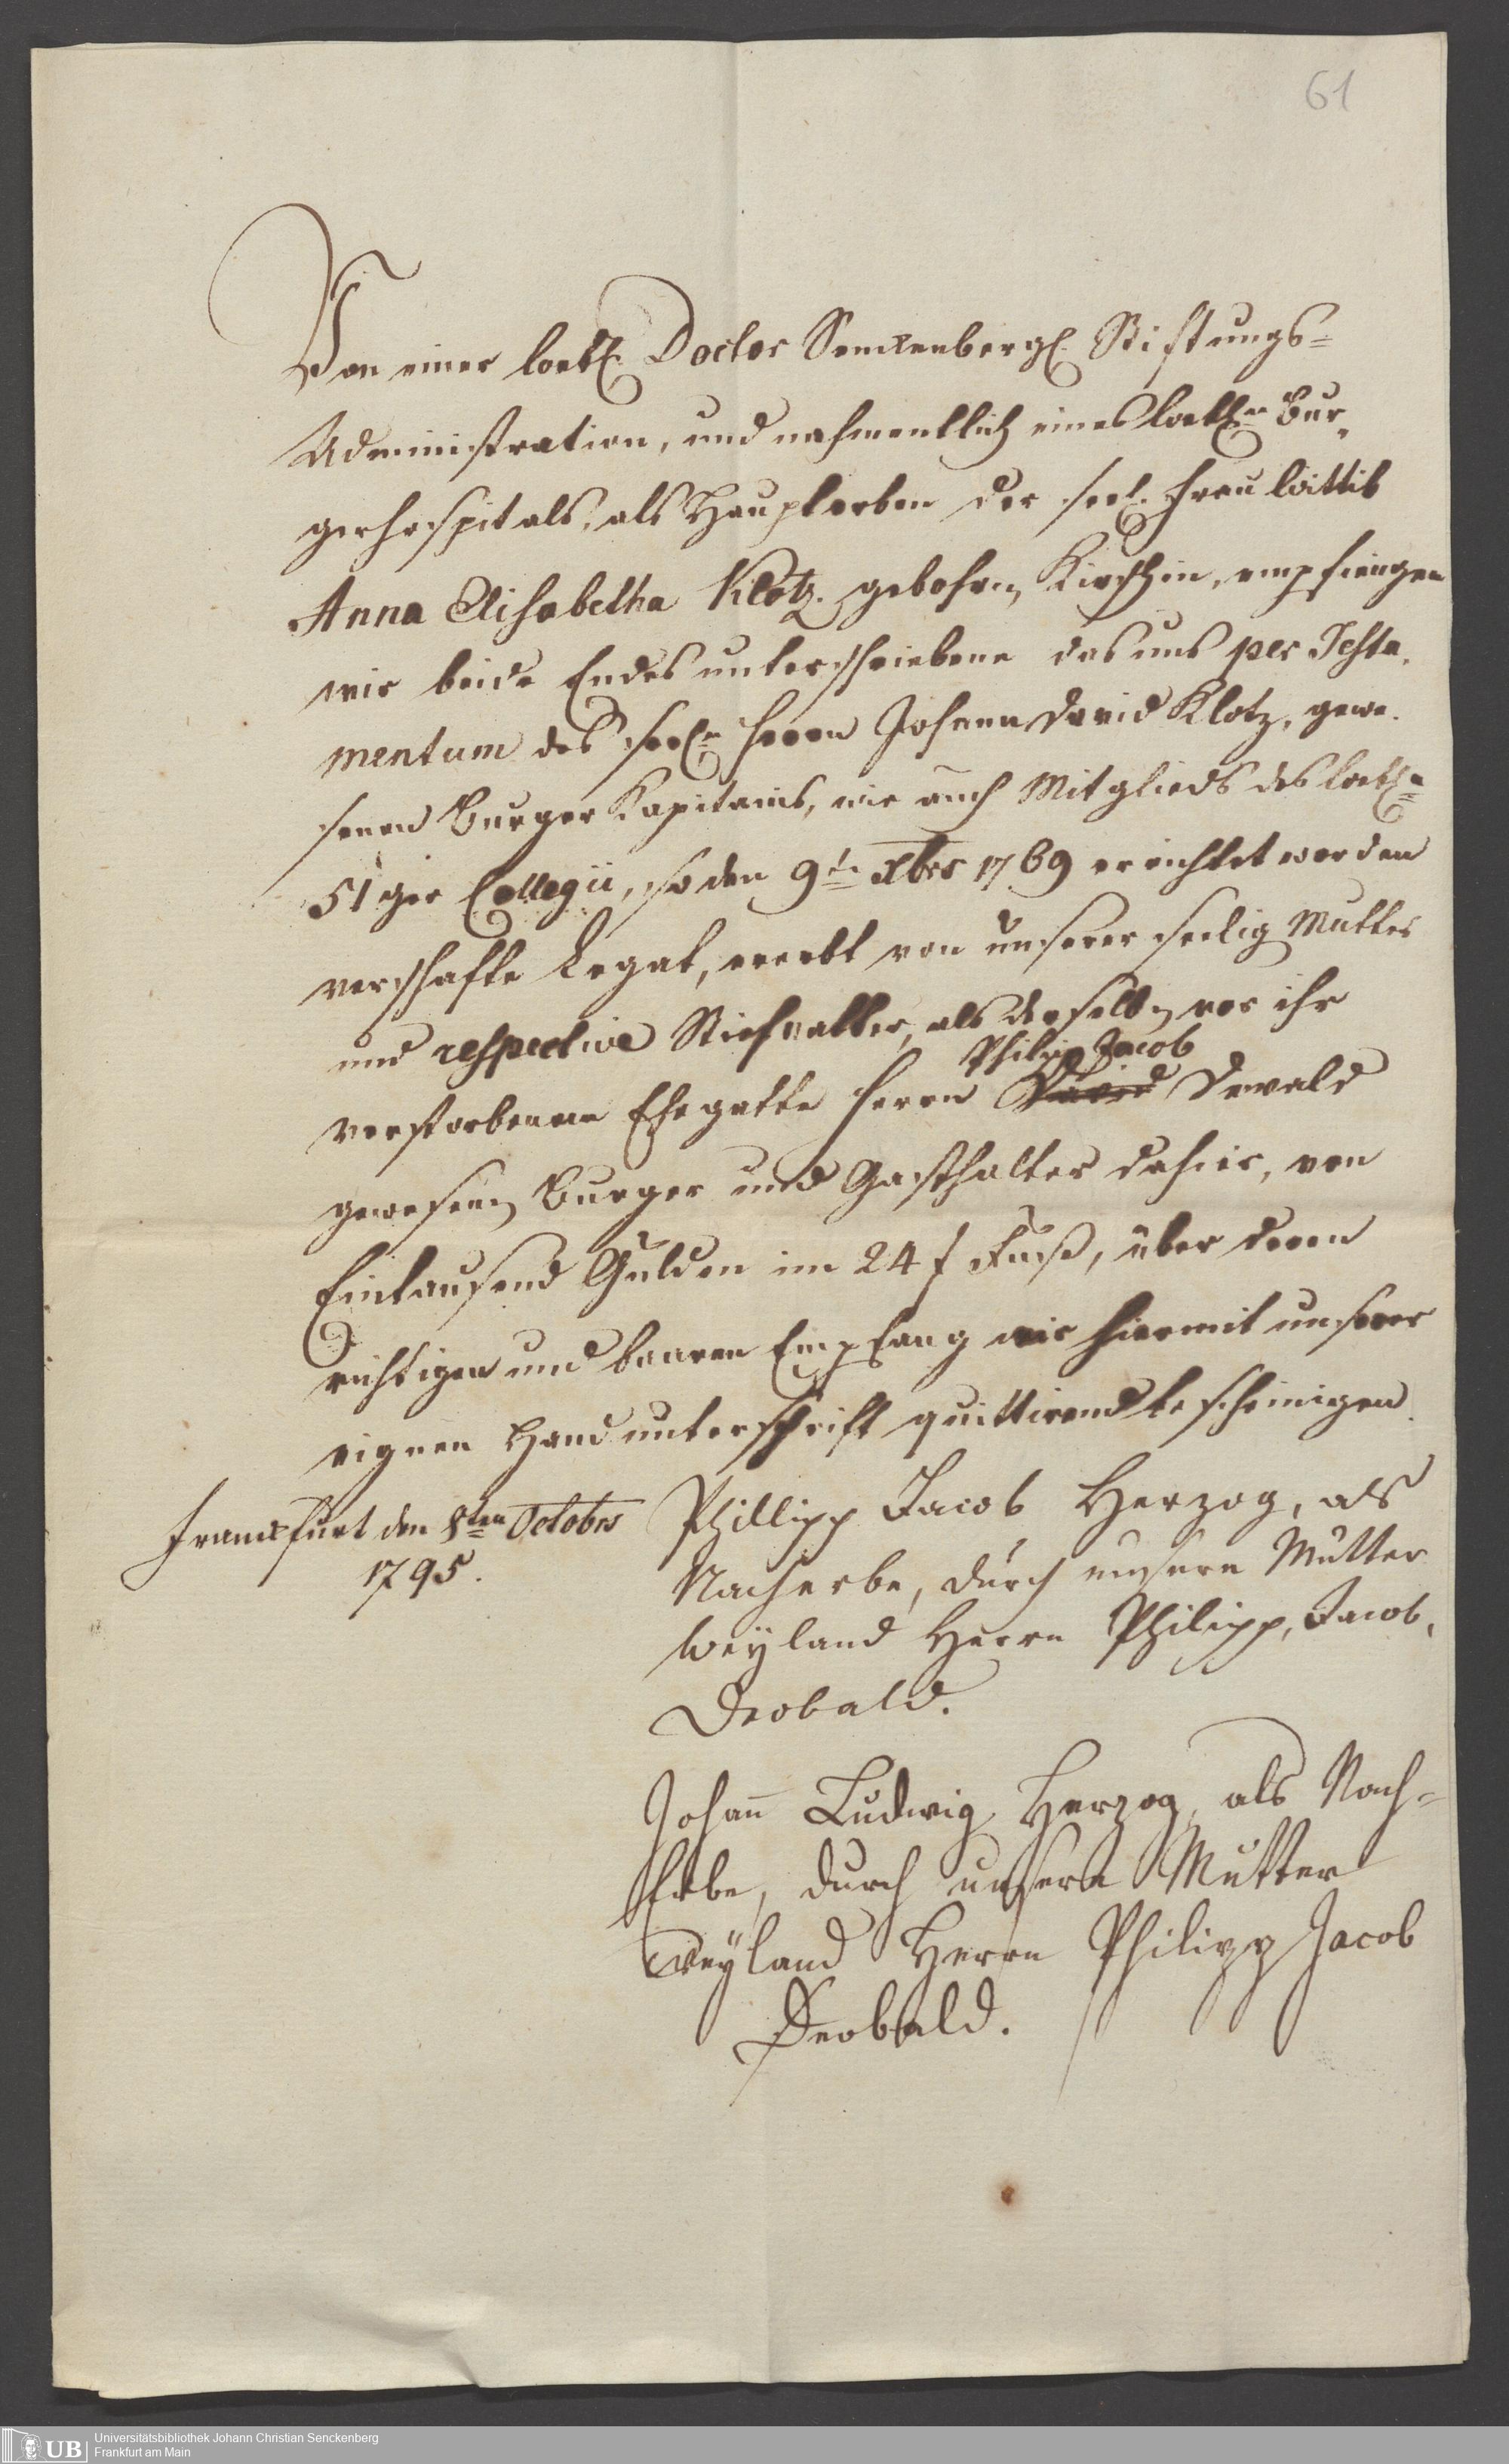 61
Von einer loebl. Doctor Senckenbergl. Stiftungs-
Administration, und nahmentlich eines loebln Bur„
gerhospitals, als Haupterben der seel. Frau Wittib
Anna Elisabetha Klotz. gebohrn Kirschin, empfiengen
wir beide Endes unterschriebene das uns per Testa„
mentum des seeln Herrn Johann David Klotz, gewe„
senen Burger Kapitains, wie auch Mitglieds des loebln
51ger Collegii, so den 9tn Xbris 1769 errichtet worden
verschaffte Legat, ererbt von unserer seelig Mutter
und respective Stiefvatter, als derselbn vor ihr
Philip Jacob
verstorbenen Ehegatte Herrn David Dewald
gewesenen Burger und Gasthalter dahier, von
Eintausend Gulden im 24 f Fuß, über deren
richtigen und baaren Empfang wir hiermit unserer
eignen Hand unterschrifft quittirend bescheinigen.
Franckfurt den 8ten Octobris
1795.
Phillipp Jacob Herzog, als
Nacherbe, durch unsere Mutter
weyland Herrn Philipp, Jacob,
Deobald.
Johann Ludwig Herzog, als Nach-
Erbe, durch unsere Mutter
weyland Herrn Philipp Jacob
Deobald.
UB
Universitätsbibliothek Johann Christian Senckenberg
Frankfurt am Main